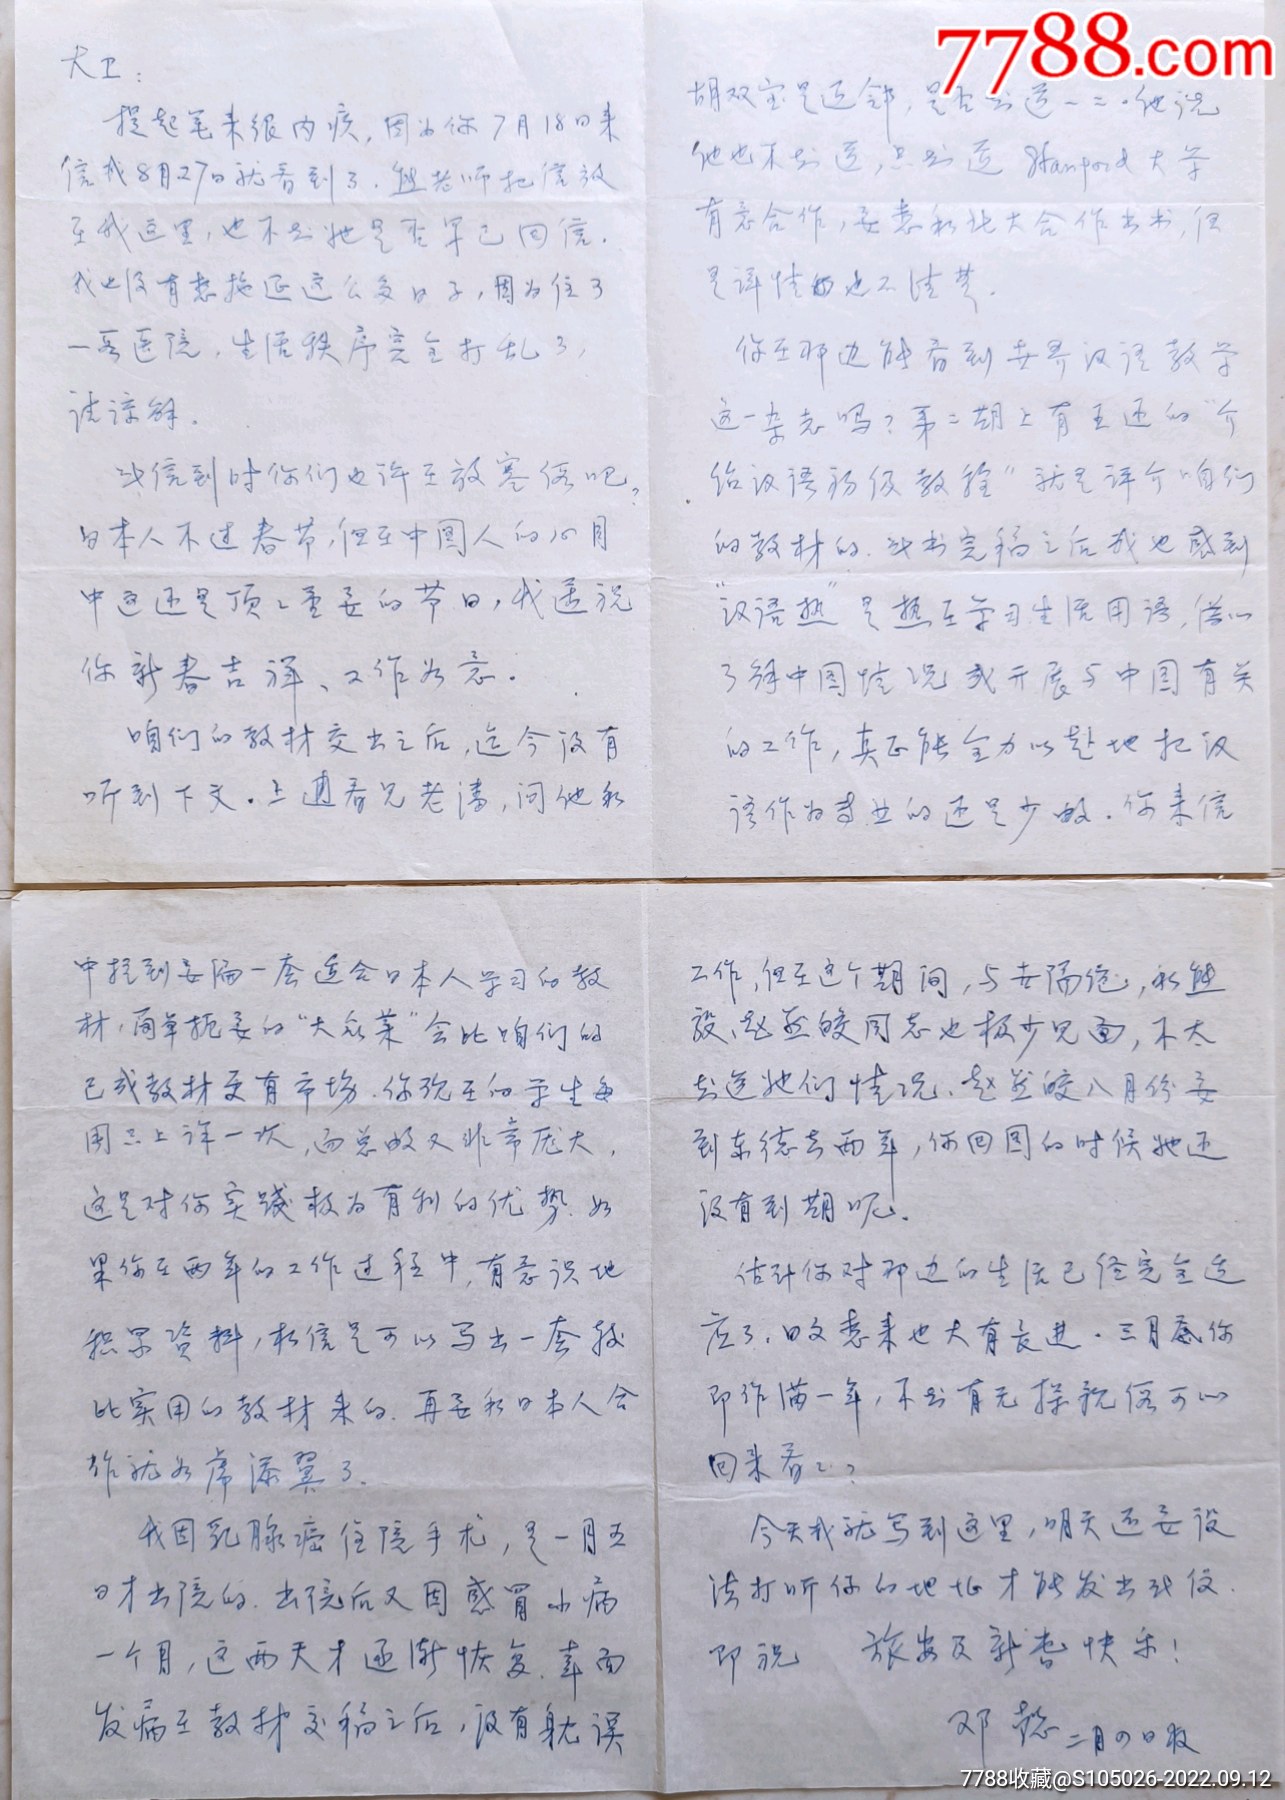 7788.com
大卫：
提起笔来很内疚，因为你7月18日来
信我8月27日就看到了．熊老师把信放
在我这里，也不知她是否早已回信．
我也没有想拖延这么多日子，因为住了
一番医院，生活秩序完全打乱了，
请谅解．
此信到时你们也许在放寒假吧？
日本人不过春节，但在中国人的心目
中这还是顶顶重要的节日，我遥祝
你新春吉祥、工作如意．
咱们的教材交出之后，迄今没有
听到下文．上週看见老潘，问他和
胡双宝是近邻，是否知道一二．他说
他也不知道，只知道 Stanford 大学
有意合作，要想和北大合作出书，但
是详情也不清楚．
你在那边能看到世界汉语教学
这一杂志吗？第二期上有王还的“介
绍汉语初级教程”就是评介咱们
的教材的．此书完稿之后我也感到
“汉语热”是热在学习生活用语，借以
了解中国情况或开展与中国有关
的工作，真正能全力以赴地把汉
语作为专业的还是少数．你来信
中提到要编一套适合日本人学习的教
材，简单扼要的“大众菜”会比咱们的
已成教材更有市场．你现在的学生每
周只上课一次，而总数又非常庞大，
这是对你实践极为有利的优势．如
果你在两年的工作过程中，有意识地
积累资料，相信是可以写出一套较
比实用的教材来的．再要和日本人合
作就如虎添翼了．
我因乳腺癌住院手术，是一月五
日才出院的．出院后又因感冒小病
一个月，这两天才逐渐恢复．幸而
发病在教材交稿之后，没有耽误
工作，但在这个期间，与世隔绝，和熊
毅、赵燕皎同志也极少见面，不太
知道她们情况．赵燕皎八月份要
到东德去两年，你回国的时候她还
没有到期呢．
估计你对那边的生活已经完全适
应了．日文想来也大有长进．三月底你
即作满一年，不知有无探亲假可以
回来看看？
今天我就写到这里，明天还要设
法打听你的地址才能发出此信．
即祝 旅安及新春快乐！
邓懿 二月四日夜
7788收藏@S105026-2022.09.12